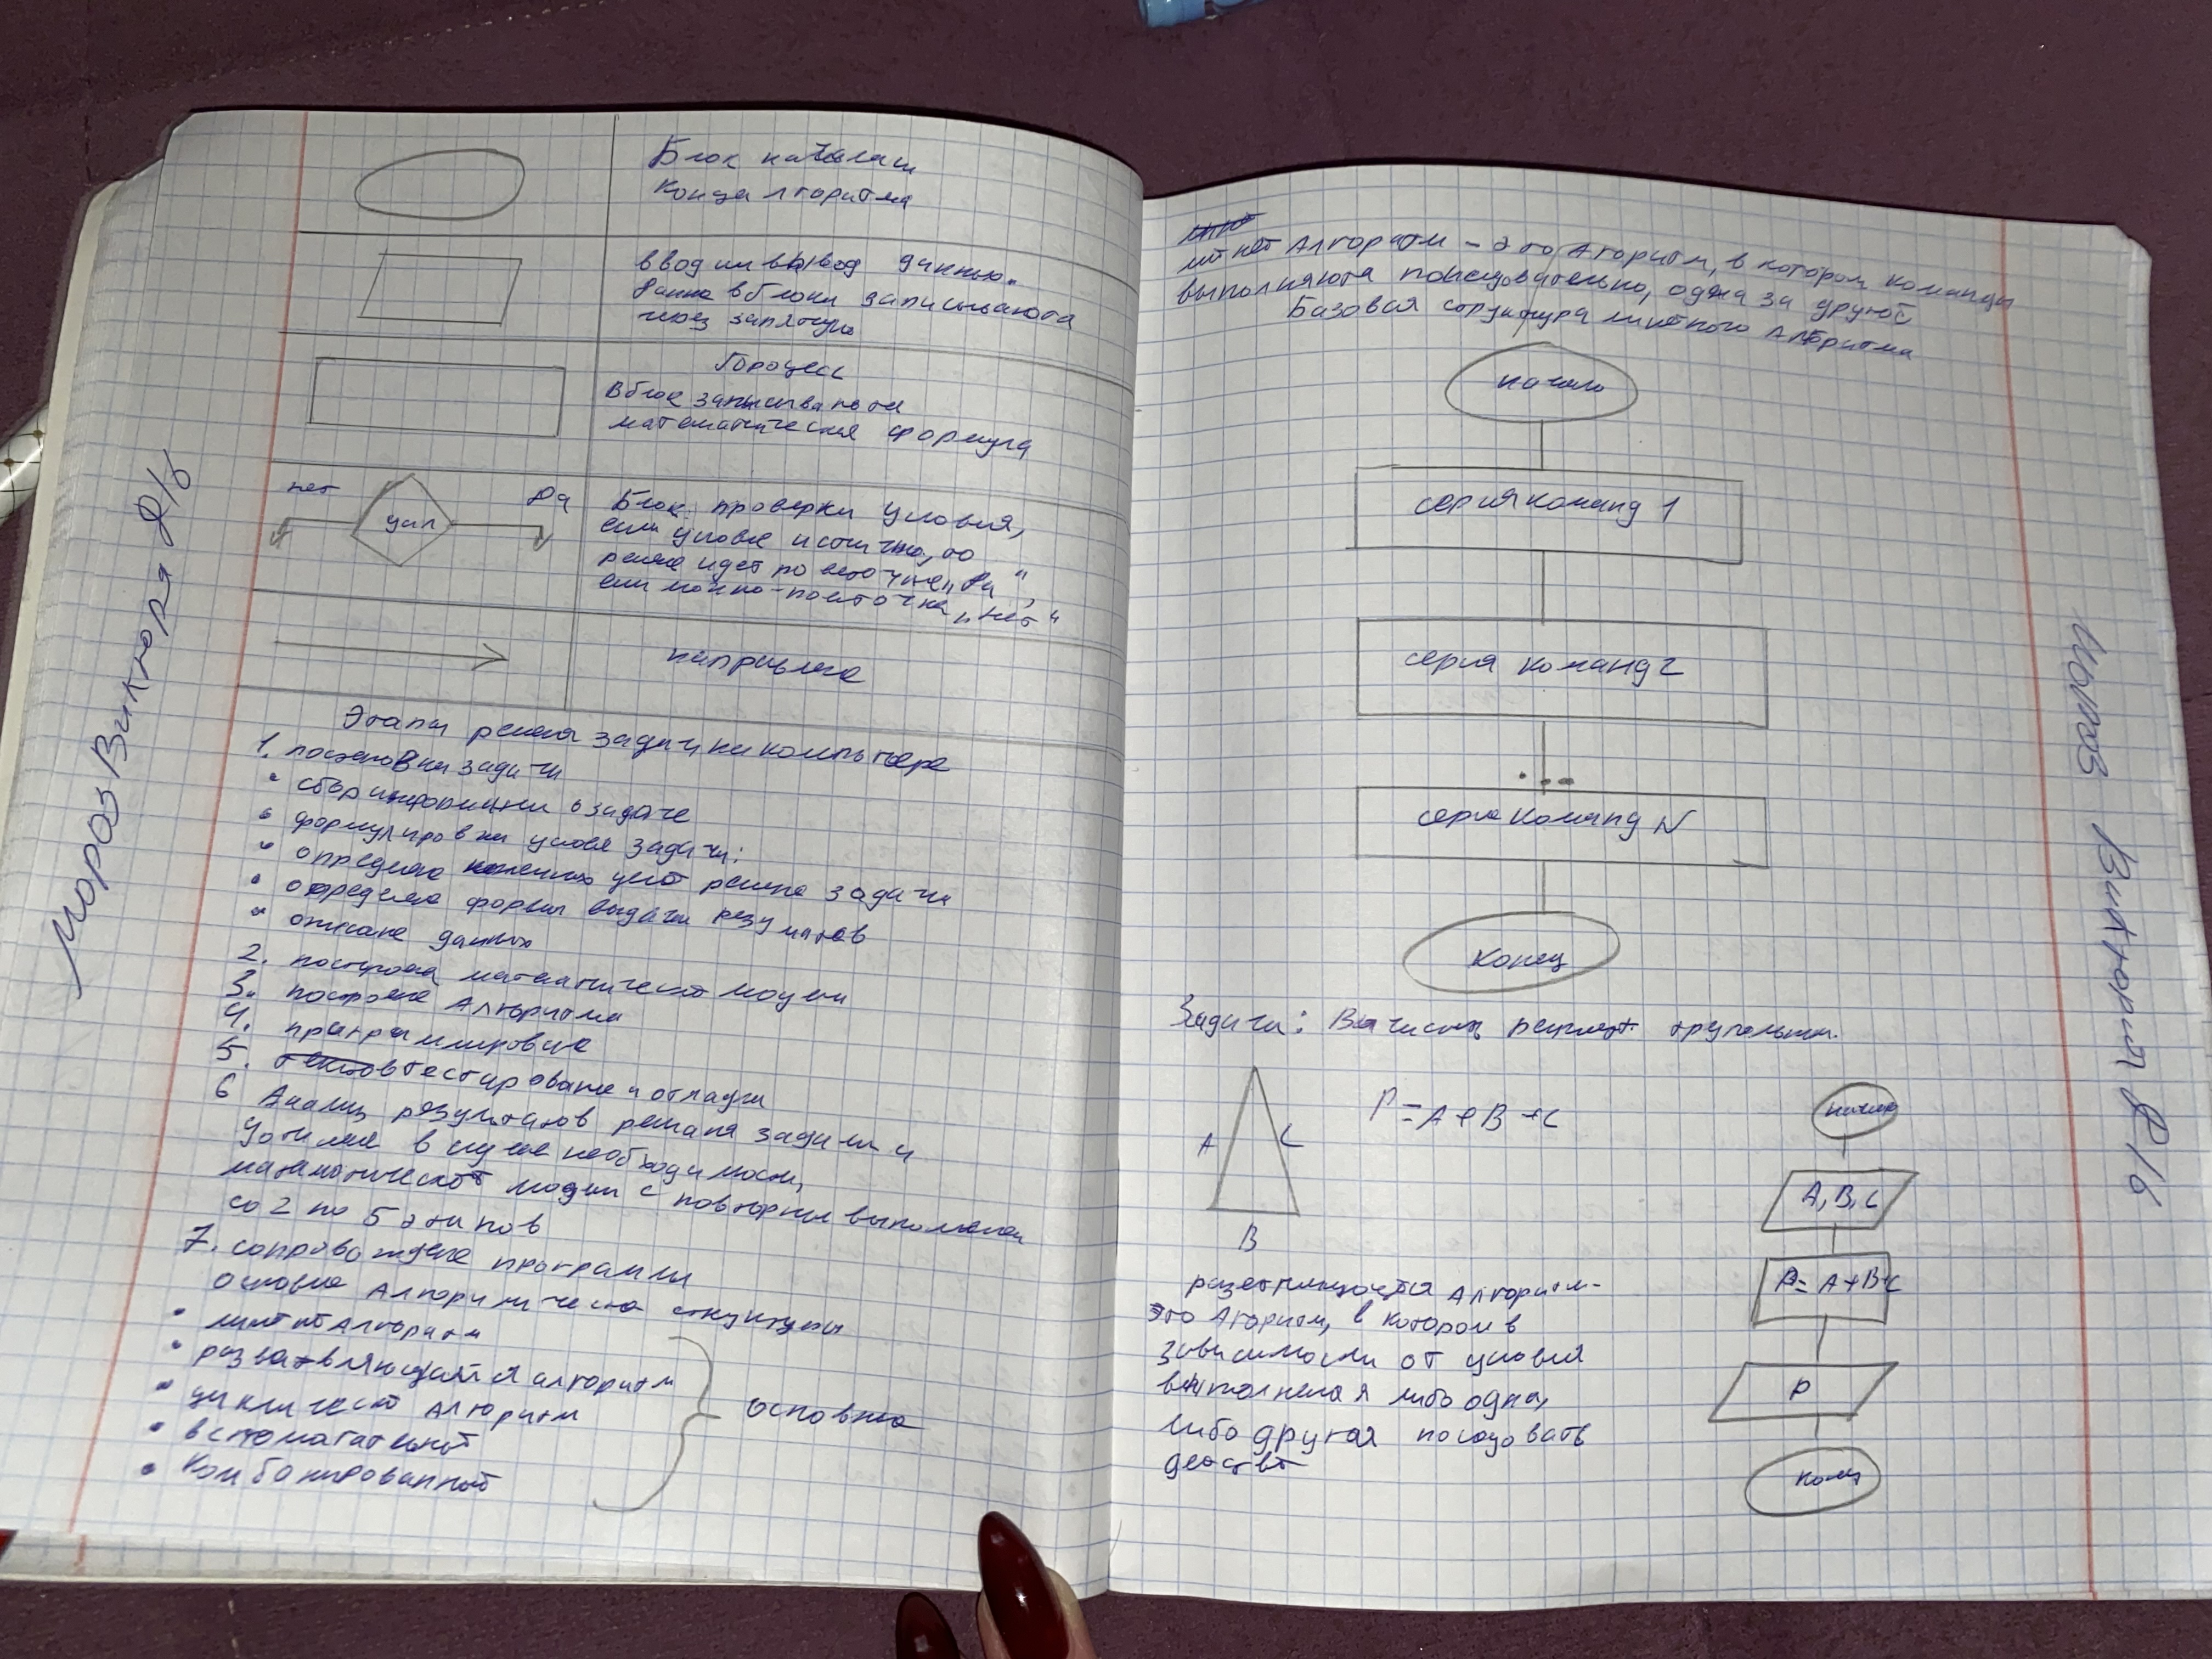 Блок начала и
конца лгоритма
ввод или вывод данных.
данне в блоки записываюта
через запятую
Процесс
В блок записываются
математическая формула
нет
усл
Да
Блок проверки условия,
если условие истично, то
решие идет по веточке „Да“,
если ложно - по веточка „нет“
направлене
Этапы решеня задачи на компьютере
1. постановка задачи
• сбор информации о задаче
• формулировки условя задачи:
• определене конечных целей решеня задачи
• определене формы выдачи резултатов
• описане данных
2. построеня математической модели
3. построене Алгоритма
4. программировне
5. тестироване и отладки
6 Анализ результатов решаня задачи и
уточнене в случае необходимости,
математической модели с повторным выполненем
со 2 по 5 этапов
7. сопровождене программы
Основне Алгоритмическа структуры
• линейнй Алгоритм
• разватвляющийся алгоритм
• циклическй Алгоритм
• вспомагательнй
• комбонированный
основню
Мороз Виктория Р16
линей Алгоритм - это Агоритм, в котором команды
выполняюта последовательно, одна за другой
Базовая структура линейного Алгоритма
начало
серия команд 1
серия команд 2
...
серия команд N
Конец
Задачи: Вычислить перимет. треугольник.
A
C
B
P = A + B + C
начало
A, B, C
P = A + B + C
P
конец
разветвляющейся Алгоритм-
это Агоритм, в котором в
зависимости от условия
выполненая либо одна,
либо другая последовать
действ
Мороз Виктория Р16